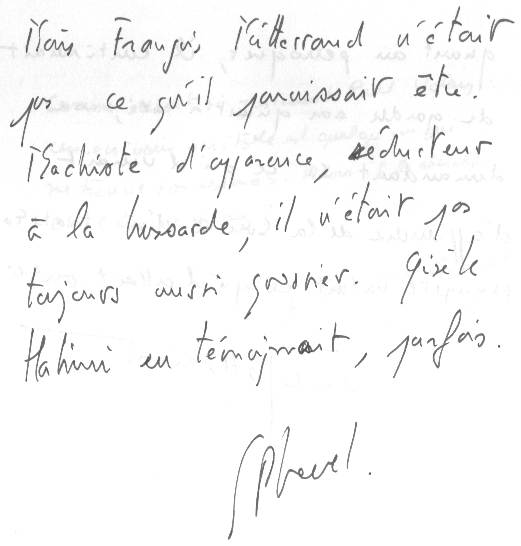 Mais François Mitterrand n'était
pas ce qu'il paraissait être.
Machiste d'apparence, séducteur
à la hussarde, il n'était pas
toujours aussi grossier. Gisèle
Halimi en témoignait, parfois.